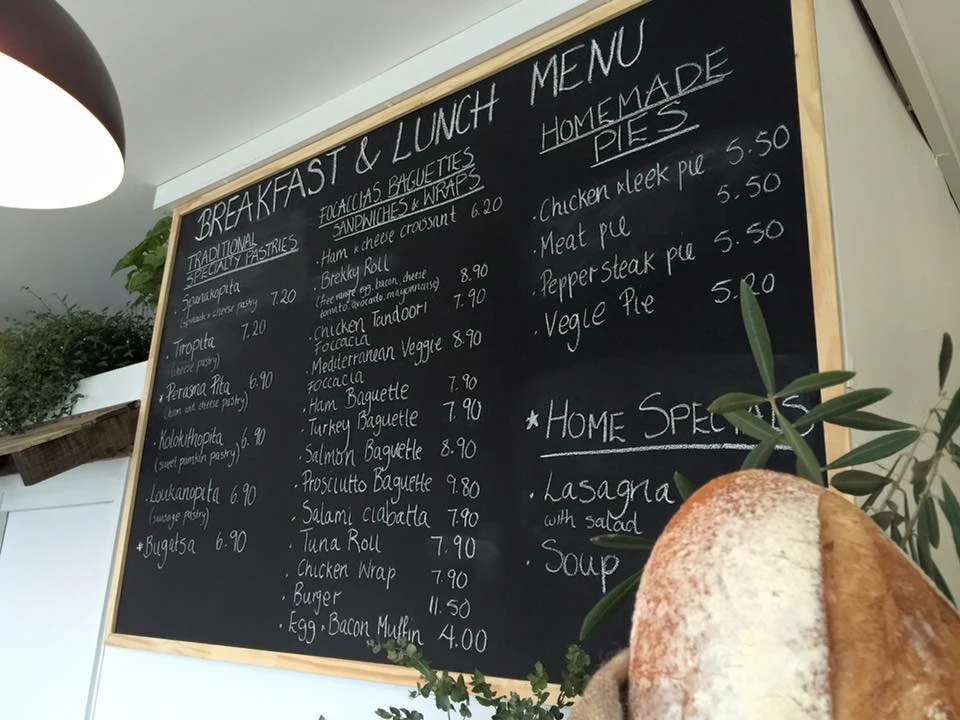 BREAKFAST & LUNCH MENU
TRADITIONAL
SPECIALTY PASTRIES
· Spanakopita
(spinach & cheese pastry) 7.20
· Tiropita 7.20
(cheese pastry)
* Perasma Pita 6.90
(ham and cheese pastry)
· Kolokithopita 6.90
(sweet pumkin pastry)
· Loukanopita 6.90
(sausage pastry)
* Bugatsa 6.90
FOCACCIAS BAGUETTES
SANDWICHES & WRAPS
· Ham & cheese croissant 6.20
· Brekky Roll 8.90
(free range egg, bacon, cheese
tomato, avocado, mayonnaise)
· Chicken Tandoori 7.90
Foccacia
· Mediterranean Veggie 8.90
Foccacia
· Ham Baguette 7.90
· Turkey Baguette 7.90
· Salmon Baguette 8.90
· Prosciutto Baguette 9.80
· Salami ciabatta 7.90
· Tuna Roll 7.90
· Chicken Wrap 7.90
· Burger 11.50
· Egg & Bacon Muffin 4.00
HOMEMADE
PIES
· Chicken & leek pie 5.50
· Meat pie 5.50
· Pepper steak pie 5.50
· Vegie Pie 5.20
* HOME SPECIALS
· Lasagna
with salad
· Soup